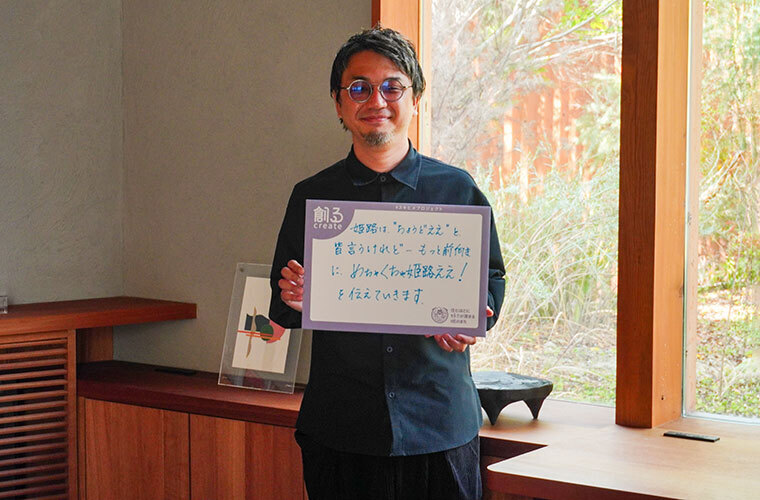 創る
create
姫路は、"ちょうどええ"と
皆言うけれどー もっと前向き
に めちゃくちゃ姫路ええ!
を伝えていきます。